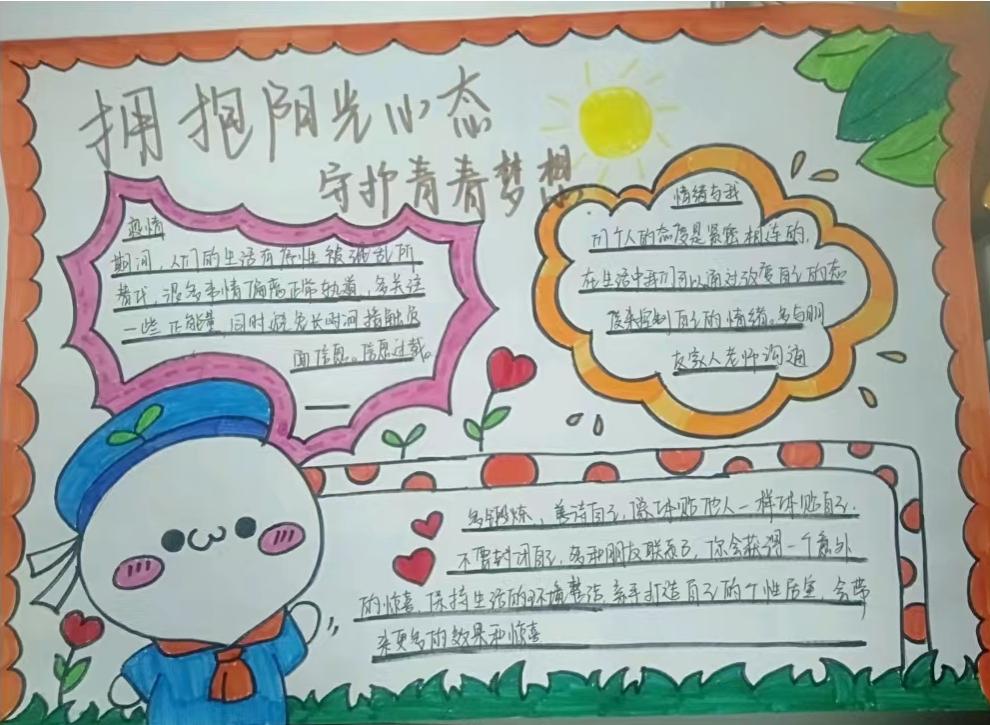 拥抱阳光心态
守护青春梦想
疫情
期间，人们的生活有惯性被混乱所
替代，很多事情偏离正常轨道，多关注
一些正能量，同时避免长时间接触负
面信息。信息过载。
情绪与我
一个人的态度是紧密相连的，
在生活中我们可以通过改变自己的态
度来控制自己的情绪。多与朋
友家人老师沟通
多锻炼，善待自己，像体贴他人一样体贴自己，
不要封闭自己，多和朋友联系，你会获得一个意外
的惊喜，保持生活的环境整洁，亲手打造自己的个性居室，会带
来更多的效果和惊喜